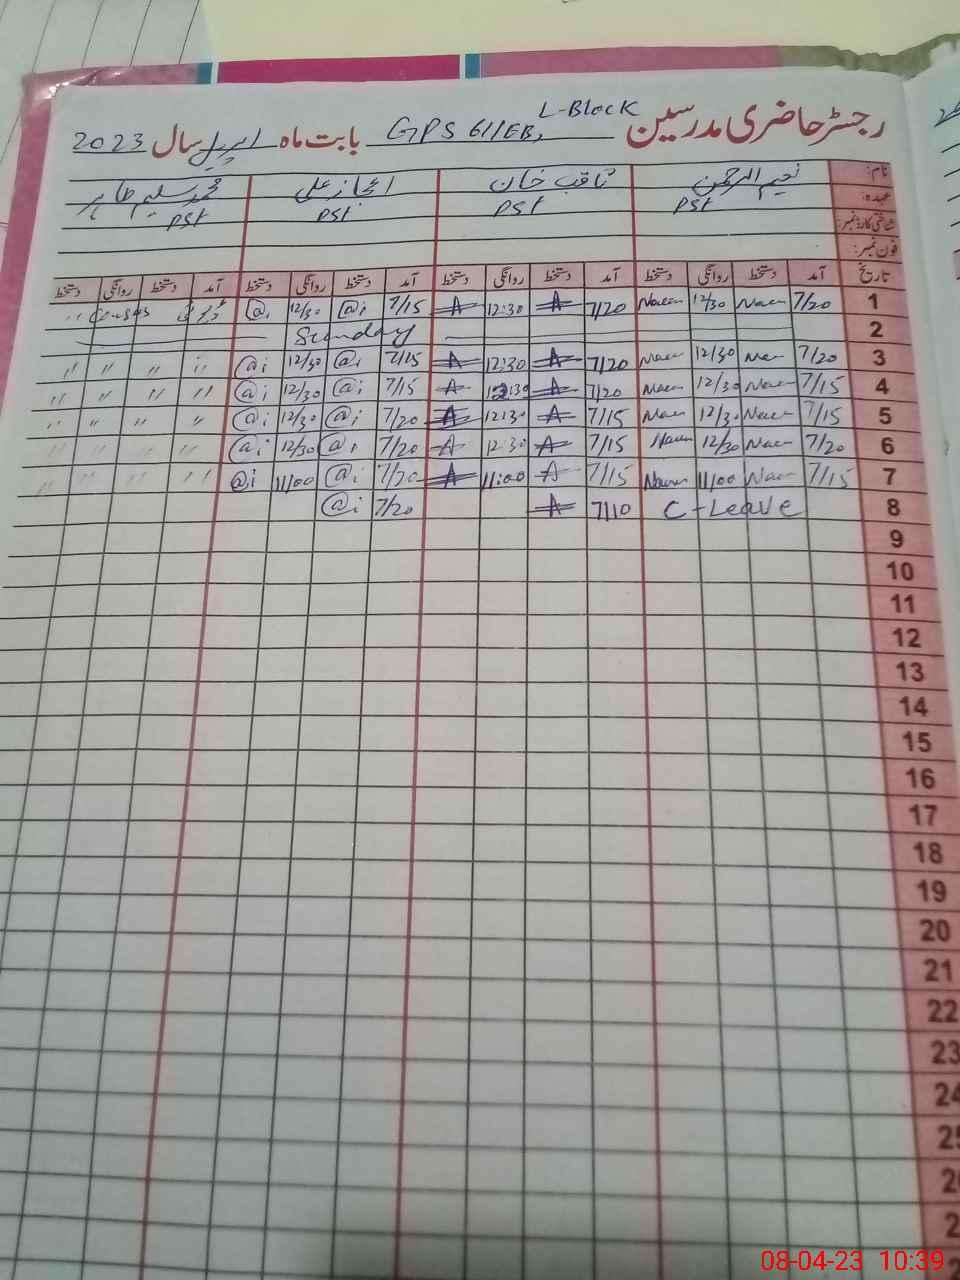 رجسٹر حاضری مدرسین GPS 611EB, L-Block بابت ماہ اپریل سال 2023
نام: نعیم الرحمن ثاقب خان اعجاز علی محمد سلیم طاہر
عہدہ: PST PST PST PST
شناختی کارڈ نمبر:
فون نمبر:
تاریخ آمد دستخط روانگی دستخط آمد دستخط روانگی دستخط آمد دستخط روانگی دستخط آمد دستخط روانگی دستخط
1 7/20 Naeem 12/30 Naeem 7/20 A 12:30 A 7/15 @i 12/30 @i
2 Sunday
3 7/20 Naeem 12/30 Naeem 7/20 A 12:30 A 7/15 @i 12/30 @i " " " "
4 7/15 Naeem 12/30 Naeem 7/20 A 12:30 A 7/15 @i 12/30 @i " " " "
5 7/15 Naeem 12/30 Naeem 7/15 A 12:30 A 7/20 @i 12/30 @i " " " "
6 7/20 Naeem 12/30 Naeem 7/15 A 12:30 A 7/20 @i 12/30 @i " " " "
7 7/15 Naeem 11/00 Naeem 7/15 A 11:00 A 7/20 @i 11/00 @i " " " "
8 C-Leave 7/10 A 7/20 @i
9
10
11
12
13
14
15
16
17
18
19
20
21
22
23
24
25
08-04-23 10:39